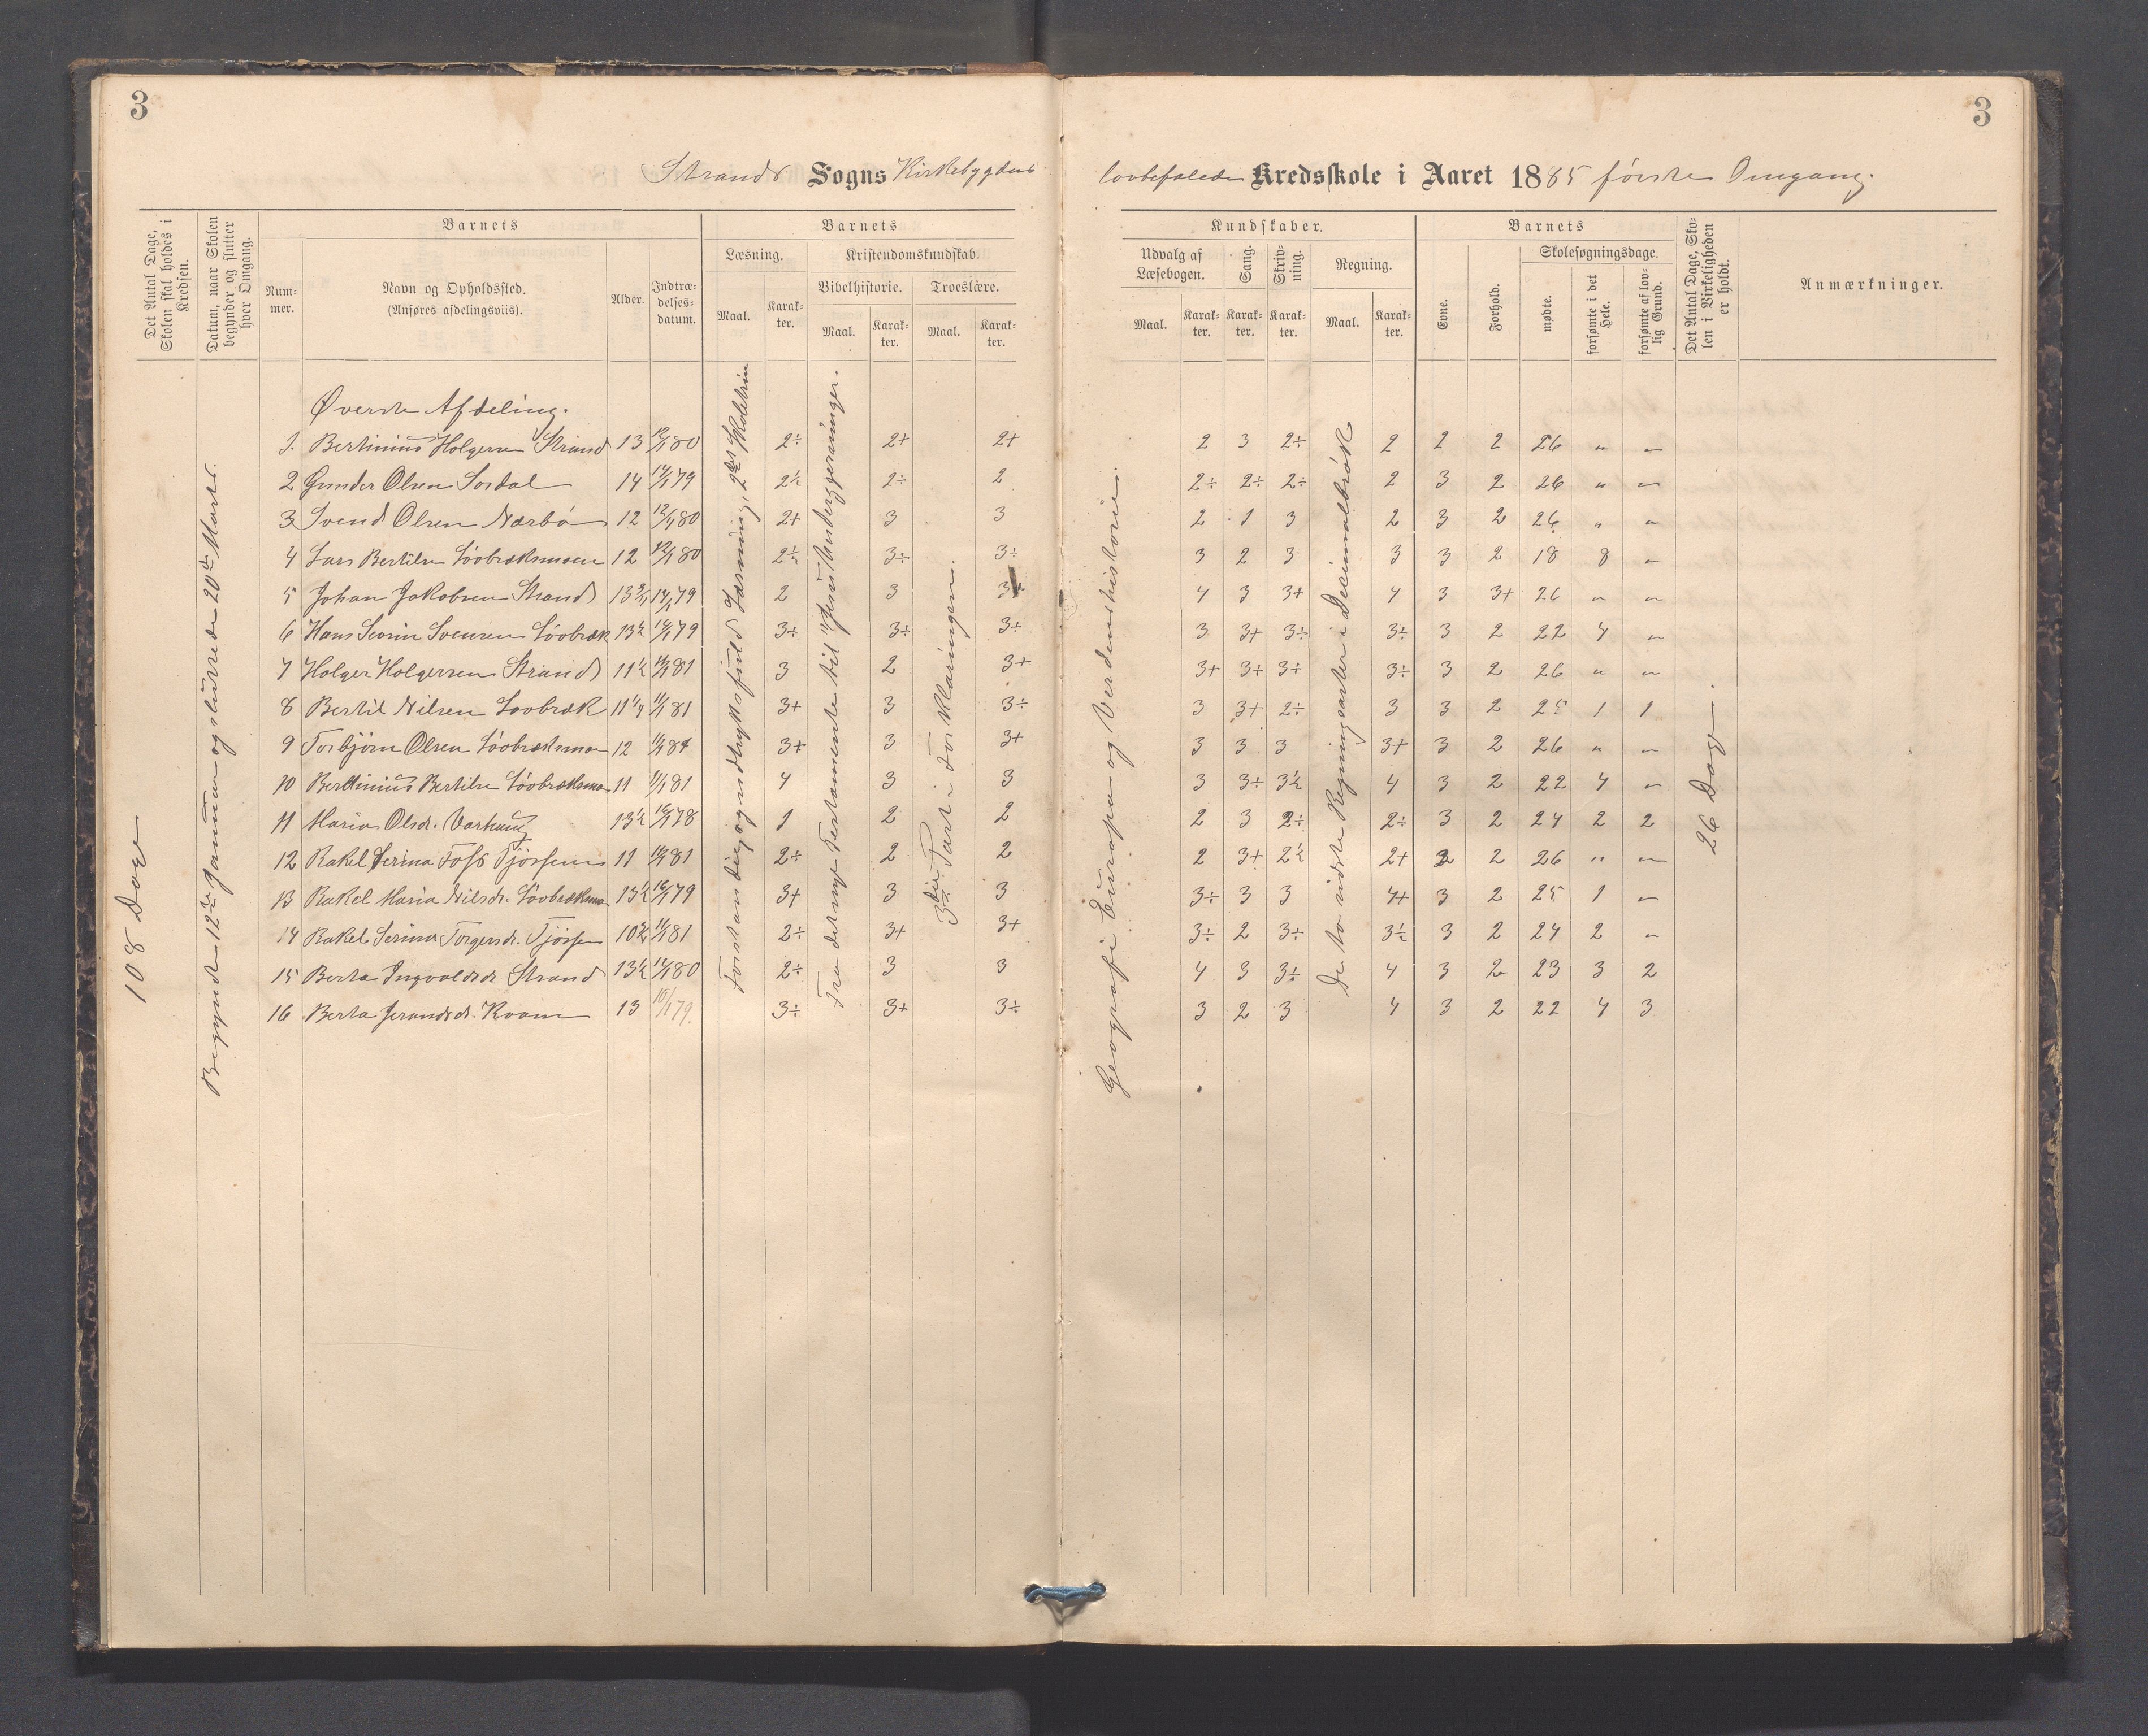 3
3
Strands Sogns Kirkebygdens lovbefalede Kredsskole i Aaret 1885 første Omgang.
Det Antal Dage, Skolen skal holdes i Kredsen.
Datum, naar Skolen begynder og slutter hver Omgang.
Barnets
Num-mer.
Navn og Opholdssted.
(Anføres afdelingsviis).
Alder.
Indtræ-delses-datum.
Barnets
Læsning.
Maal.
Karak-ter.
Kristendomskundskab.
Bibelhistorie.
Maal.
Karak-ter.
Troeslære.
Maal.
Karak-ter.
Kundskaber.
Udvalg af Læsebogen.
Maal.
Karak-ter.
Sang.
Karak-ter.
Skriv-ning.
Karak-ter.
Regning.
Maal.
Karak-ter.
Barnets
Evne.
Forhold.
Skolesøgningsdage.
mødte.
forsømte i det Hele.
forsømte af lov-lig Grund.
Det Antal Dage, Sko-len i Virkeligheden er holdt.
Anmærkninger.
108 Dage
Begyndte 12te Januar og sluttede 20de Marts.
Forstandig og udtryksfuld Læsning, 2det Skoletrin
Fra det nye Testamente til "Jesu Undergjerninger.
3die Part i Forklaringen.
Geografi: Europa og Verdenshistorie.
De to sidste Regningsarter i Decimalbrøk
26 Dage
Øverste Afdeling.
1. Bertinius Holgersen Strand 13 12/1 80 2÷ 2+ 2+ 2 3 2÷ 2 2 2 26 " "
2 Gunder Olsen Sordal 14 14/1 79 2½ 2÷ 2 2÷ 2÷ 2÷ 2 3 2 26 " "
3 Svend Olsen Nærbö 12 12/1 80 2+ 3 3 2 1 3 2 3 2 26 " "
4 Lars Bertilsen Löobræksmoen 12 12/1 80 2½ 3÷ 3÷ 3 2 3 3 3 2 18 8 "
5 Johan Jakobsen Strand 13 14/1 79 2 3 3+ 4 3 3+ 4 3 3+ 26 " "
6 Hans Severin Svensen Löobræk 13½ 14/1 79 3÷ 3÷ 3÷ 3 3+ 3÷ 3÷ 3 2 22 4 "
7 Holger Holgersen Strand 11½ 11/1 81 3 2 3+ 3+ 3÷ 3÷ 3÷ 3 2 26 " "
8 Bertil Nilsen Löobræk 11¼ 11/1 81 3+ 3 3÷ 3 3+ 2÷ 3 3 2 25 1 1
9 Torbjörn Olsen Löobræksmoe 12 11/1 84 3+ 3 3+ 3 3 3 3+ 3 2 26 " "
10 Bertinius Bertilsen Löobræksmo 11 11/1 81 4 3 3 3 3÷ 3½ 4 3 2 22 4 "
11 Maria Olsdr. Varhaug 13½ 16/1 78 1 2 2 2 3 2÷ 2÷ 3 2 24 2 2
12 Rakel Serina Foss Tjössem 11 11/1 81 2÷ 2 2 2 3+ 2½ 2+ 2 2 26 " "
13 Rakel Maria Nilsdr. Löobræksmo 13½ 16/1 79 3+ 3 3 3÷ 3 3 4+ 3 2 25 1 "
14 Rakel Serina Torgersdr. Tjössem 10¾ 11/1 81 2÷ 3+ 3+ 3÷ 2 3÷ 3½ 3 2 24 2 "
15 Berta Ingvaldsdr Strand 13½ 12/1 80 2÷ 3 3 4 3 3÷ 4 3 2 23 3 2
16 Berta Jerandsdr. Kvame 13 10/1 79. 3÷ 3+ 3÷ 3 2 3 4 3 2 22 4 3